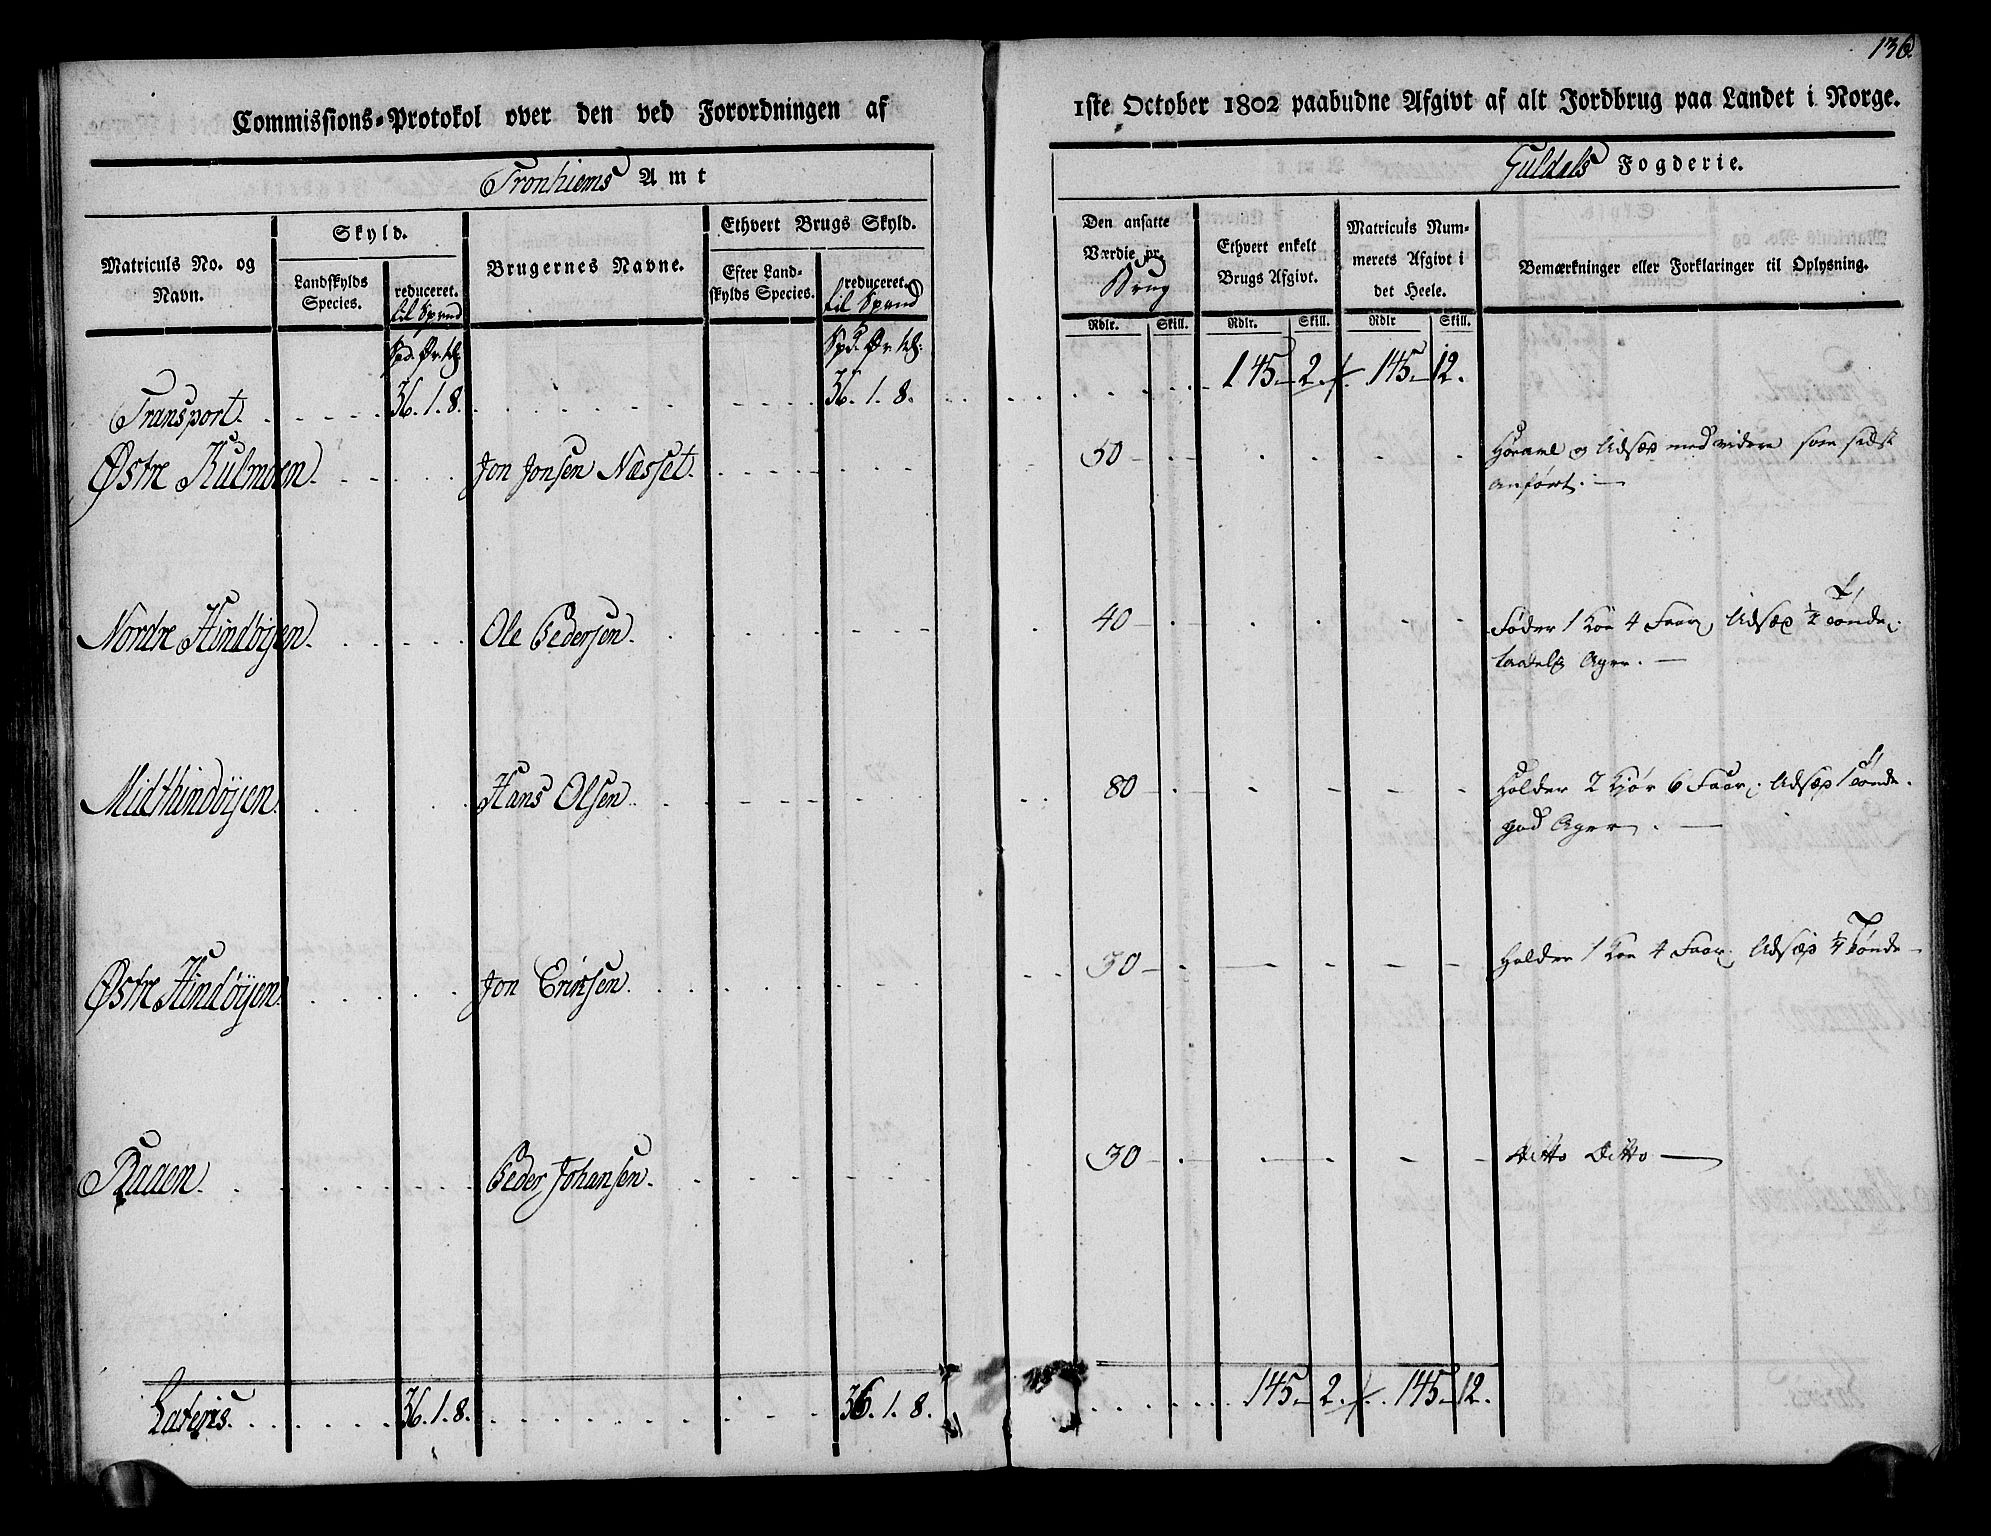 136
Commissions-Protokol over den ved Forordningen af 1ste October 1802 paabudne Afgivt af alt Jordbrug paa Landet i Norge.
Tronhiems Amt
Guldals Fogderie.
Matriculs No. og Navn.
Skyld.
Landskylds Species.
reduceret. til Spand
Brugernes Navne.
Ethvert Brugs Skyld.
Efter Landskylds Species.
reduceret. til Spand
Den ansatte Værdie pr. Brug
Ethvert enkelt Brugs Afgivt.
Matriculs Nummerets Afgivt i det Heele.
Bemærkninger eller Forklaringer til Oplysning.
Rdlr. Skill. Rdlr. Skill. Rdlr Skill.
Spd. Ør. Spd. Ør.
Transport. 36. 1. 8. 36. 1. 8. 145 2 145 12.
Østre Kulmoen. Jon Jonsen Næsset. 50 og Udsæd med videre som sidst
anført.
Nordre Hindöyen. Ole Pedersen. 40 Föder 1 Koe 4 Faar, Udsæd Tönde
Ager.
Midthindöyen. Hans Olsen. 80 Holder 2 Kjör 6 Faar, Udsæd 1 Tönde.
god Ager.
Østre Hindöyen. Jon Ericsen. 30 Holder 1 Koe 4 Faar. Udsæd Tönde
Raaen. Peder Johansen. 30 Ditto Ditto
Lateris. 36. 1. 8. 36. 1. 8. 145 2 145 12.